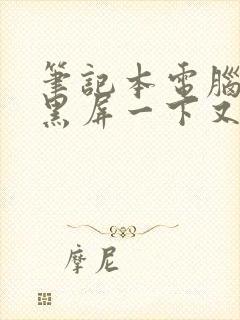 筆記本電腦
黑屏一下又
摩尼